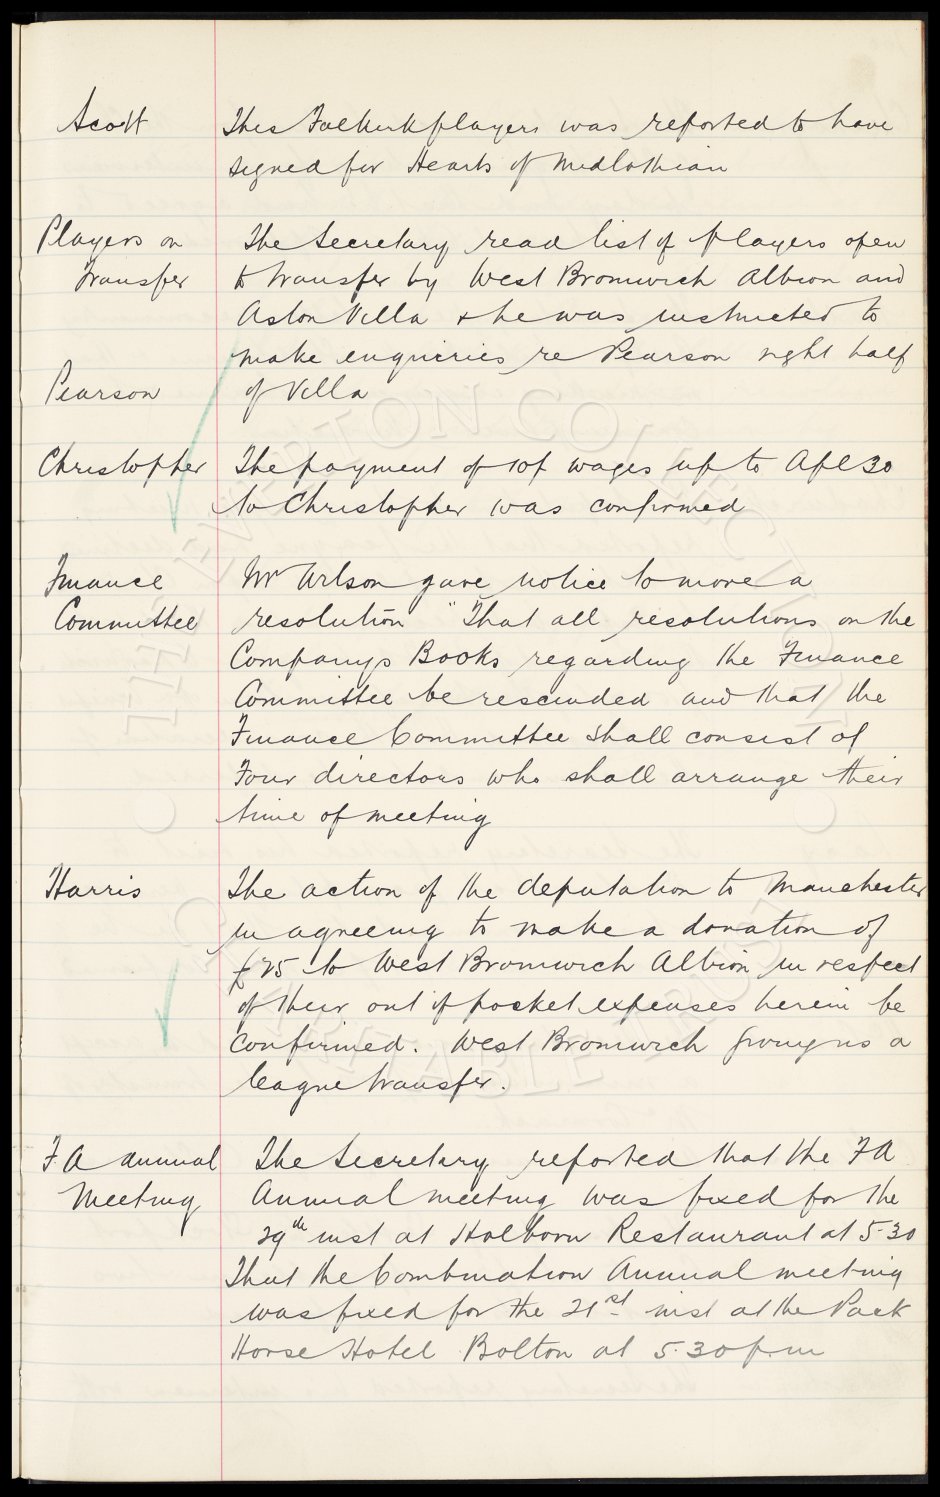 Scott
This Falkirk players was reported to have
signed for Hearts of Midlothian
Players on
Transfer
The Secretary read list of players open
to transfer by West Bromwich Albion and
Aston Villa & he was instructed to
make enquiries re Pearson right half
Pearson
of Villa
Christopher
The payment of 10/- wages up to Apl 30
to Christopher was confirmed
Finance
Committee
Mr Wilson gave notice to move a
resolution "That all resolutions on the
Company's Books regarding the Finance
Committee be rescinded and that the
Finance Committee shall consist of
Four directors who shall arrange their
time of meeting
Harris
The action of the deputation to Manchester
in agreeing to make a donation of
£25 to West Bromwich Albion in respect
of their out of pocket expenses herein be
confirmed. West Bromwich giving us a
league transfer.
F A annual
Meeting
The Secretary reported that the F A
Annual meeting was fixed for the
29th inst at Holborn Restaurant at 5-30
That the Combination Annual meeting
was fixed for the 21st inst at the Pack
Horse Hotel Bolton at 5.30 p.m
THE EVERTON COLLECTION
CHARITABLE TRUST